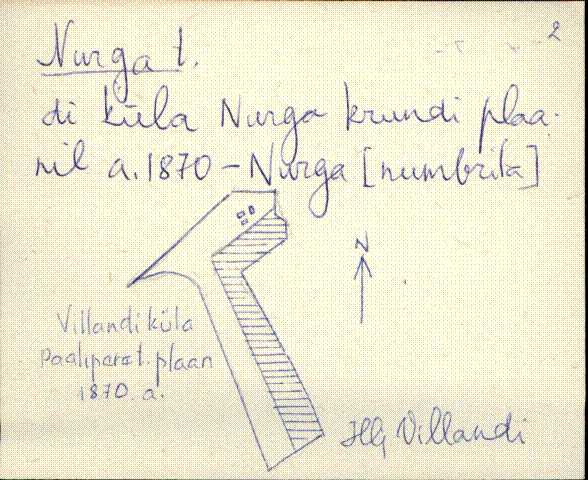 2
Nurga t.
di küla Nurga krundi plaa-
nil a. 1870 – Nurga [numbrita]
N
Villandi küla
plaan
1870. a.
Villandi